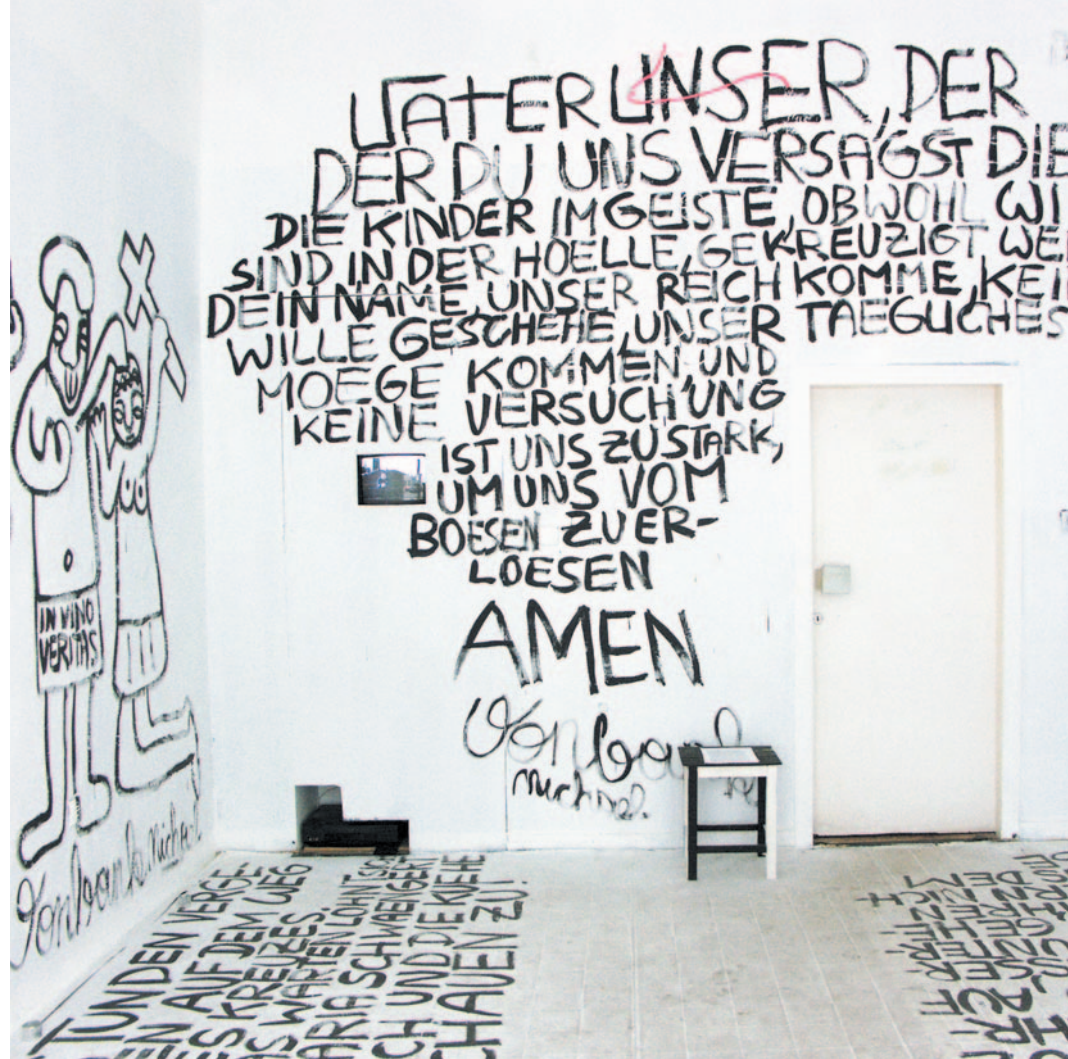 VATER UNSER, DER
DER DU UNS VERSAGST DIE
DIE KINDER IM GEISTE, OBWOHL WI
SIND IN DER HOELLE, GEKREUZIGT WE
DEIN NAME, UNSER REICH KOMME, KEI
WILLE GESCHEHE, UNSER TAEGLICHES
MOEGE KOMMEN UND
KEINE VERSUCHUNG
IST UNS ZU STARK,
UM UNS VOM
BOESEN ZU ER-
LOESEN
AMEN
IN VINO
VERITAS
TUNDEN VERGE-
EN AUF DEM WEG
ES KREUZES
AS WARTEN LOHNT SIC
ARIA SCHWAENGERT
CH UND DIE KUEHE
CHAUEN ZU!